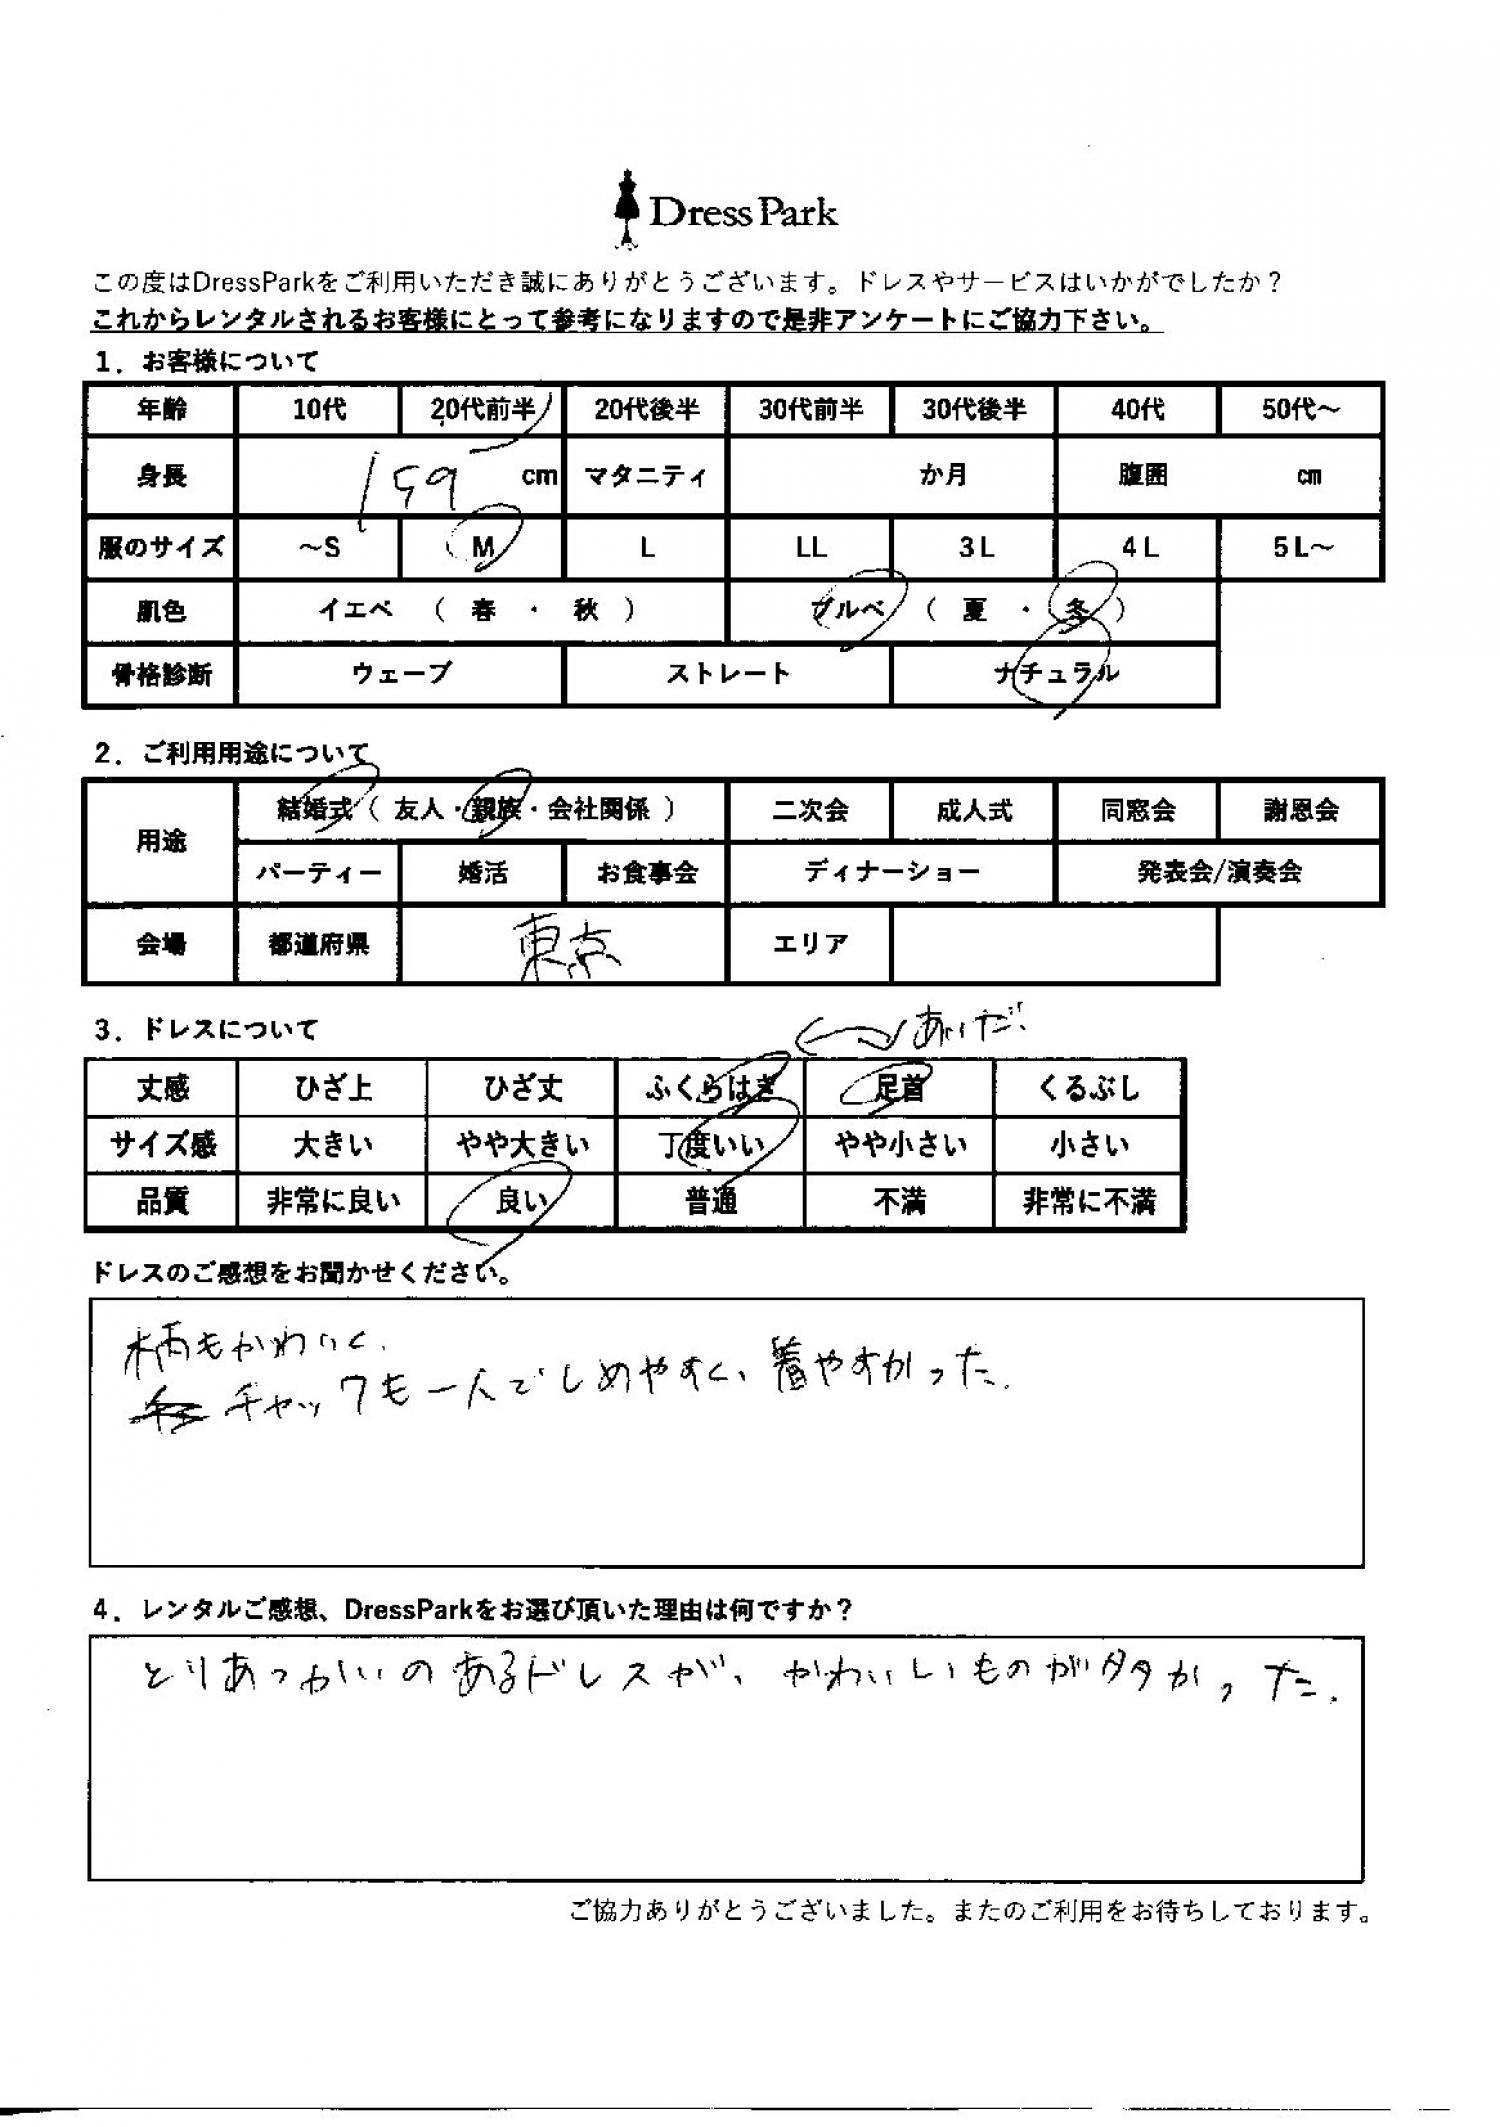 DressPark
この度はDressParkをご利用いただき誠にありがとうございます。ドレスやサービスはいかがでしたか？
これからレンタルされるお客様にとって参考になりますので是非アンケートにご協力下さい。
1．お客様について
年齢 10代 20代前半 20代後半 30代前半 30代後半 40代 50代～
身長 159 cm マタニティ か月 腹囲 ㎝
服のサイズ ～S M L LL 3L 4L 5L～
肌色 イエベ （ 春 ・ 秋 ） ブルベ （ 夏 ・ 冬 ）
骨格診断 ウェーブ ストレート ナチュラル
2．ご利用用途について
用途 結婚式（ 友人・親族・会社関係 ） 二次会 成人式 同窓会 謝恩会
パーティー 婚活 お食事会 ディナーショー 発表会/演奏会
会場 都道府県 東京 エリア
3．ドレスについて
あいだ.
丈感 ひざ上 ひざ丈 ふくらはぎ 足首 くるぶし
サイズ感 大きい やや大きい 丁度いい やや小さい 小さい
品質 非常に良い 良い 普通 不満 非常に不満
ドレスのご感想をお聞かせください。
柄もかわいく.
チャックも一人でしめやすく、着やすかった.
4．レンタルご感想、DressParkをお選び頂いた理由は何ですか？
とりあつかいのあるドレスが、かわいいものが多かった.
ご協力ありがとうございました。またのご利用をお待ちしております。